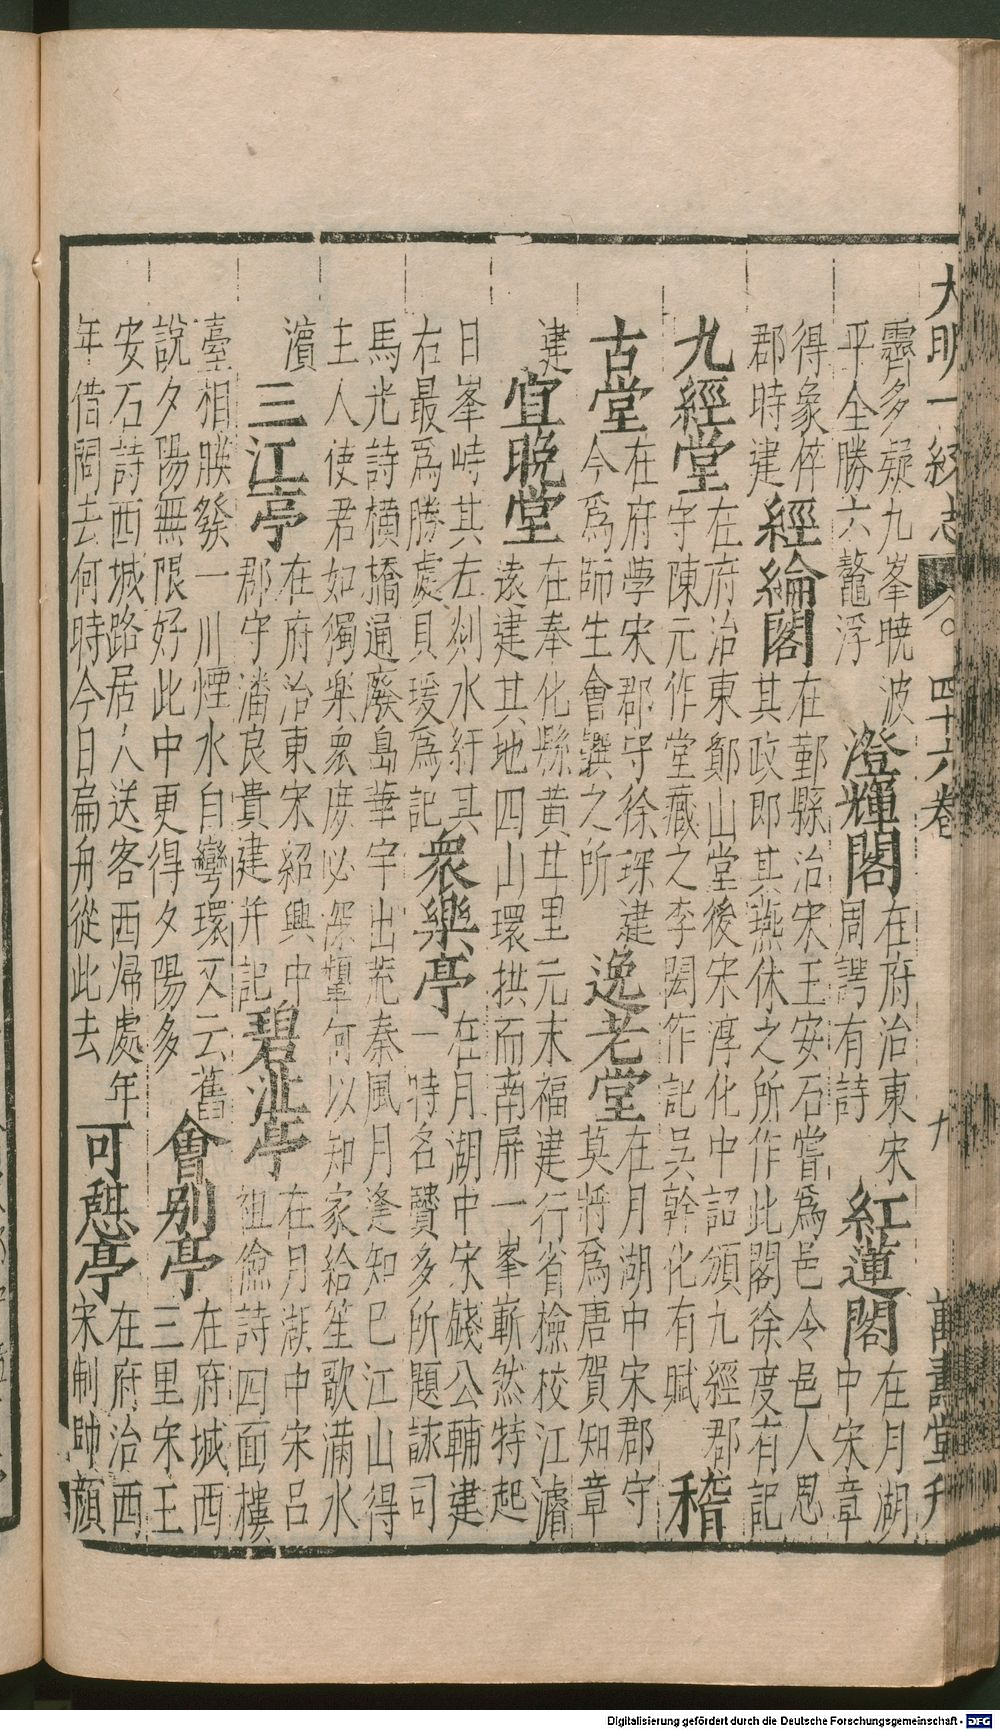 大明一統志 四十六卷 九 萬壽堂刋
霽多疑九峯曉波 澄輝閣 在府治東宋 紅蓮閣 在月湖
平全勝六鼇浮 周諤有詩 中宋章
得象倅 經綸閣 在鄞縣治宋王安石嘗爲邑令邑人思
郡時建 其政即其燕休之所作此閣徐度有記
九經堂 在府治東鄮山堂後宋淳化中詔頒九經郡 稽
守陳元作堂藏之李閎作記吳幹化有賦
古堂 在府學宋郡守徐琛建 逸老堂 在月湖中宋郡守
今爲師生會饌之所 莫將爲唐賀知章
建 宜晚堂 在奉化縣黃甘里元末福建行省檢校江濬
遠建其地四山環拱而南屏一峯嶄然特起
日峯峙其左剡水紆其 衆樂亭 在月湖中宋錢公輔建
右最爲勝處貝瑗爲記 一特名賢多所題詠司
馬光詩橫橋通廢島華宇出荒秦風月逢知己江山得
主人使君如獨樂衆庶必深顰何以知家給笙歌滿水
濱 三江亭 在府治東宋紹興中 碧沚亭 在月湖中宋呂
郡守潘良貴建并記 祖儉詩四面樓
臺相映發一川煙水自彎環又云舊 會别亭 在府城西
說夕陽無限好此中更得夕陽多 三里宋王
安石詩西城路居人送客西歸處年 可憩亭 在府治西
年借問去何時今日扁舟從此去 宋制帥顔
Digitalisierung gefördert durch die Deutsche Forschungsgemeinschaft - DFG